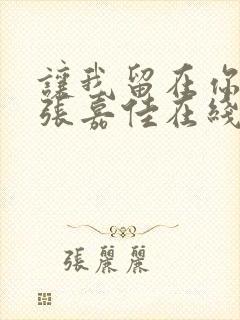 讓我留在你
張嘉佳在綫
張麗麗